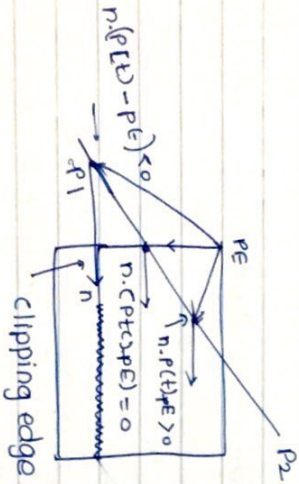 n.(P[t) - PE) < 0
PE
P1
n
n.(P(t)-PE) = 0
n.P(t)-PE > 0
P2
Clipping edge